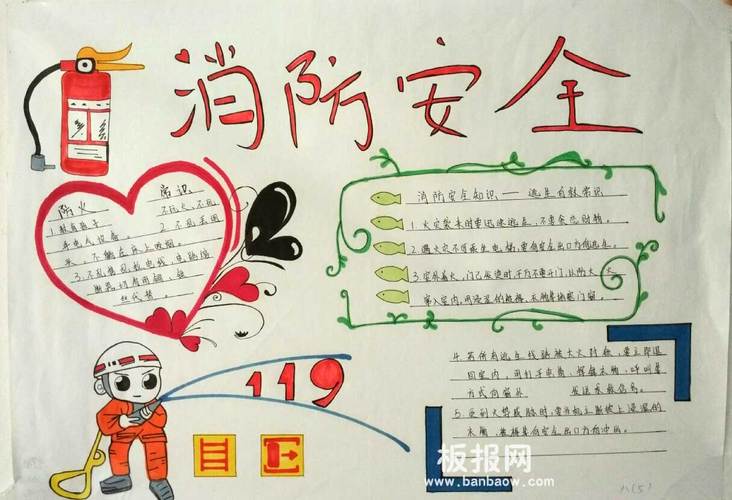 消防安全
防火 常识
1.教育孩子 不玩火、不玩
手电气设备。 2.不乱丢烟
头、不躺在床上吸烟。
3.不乱接乱拉电线,电路熔
断器切勿用铜、铁
丝代替。
消防安全知识——逃生自救常识
1.火灾袭来时要迅速逃生,不要贪恋财物。
2.遇火灾不可乘坐电梯,要向安全出口方向逃生。
3.室外着火,门已发烫时,千万不要开门,以防大火
窜入室内,用浸湿的被褥、衣物等堵塞门窗。
4.若所有逃生线路被大火封锁,要立即退
回室内,用打手电筒、挥舞衣物、呼叫等
方式向窗外 发送求救信号。
5.受到火势威胁时,要当机立断披上浸湿的
衣物、被褥等向安全出口方向冲出。
119
板报网
www.banbaow.com
八(5)